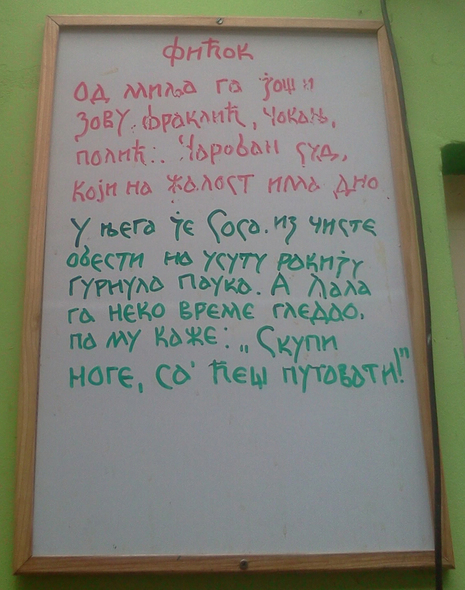 фићок
од миља га још и
зову: фраклић, чокањ,
полић... Чарован суд,
који на жалост има дно
У њега је Соса из чисте
обести на усуту ракију
гурнула паука. А Лала
га неко време гледао,
па му каже: „Скупи
ноге, са' ћеш путовати!"